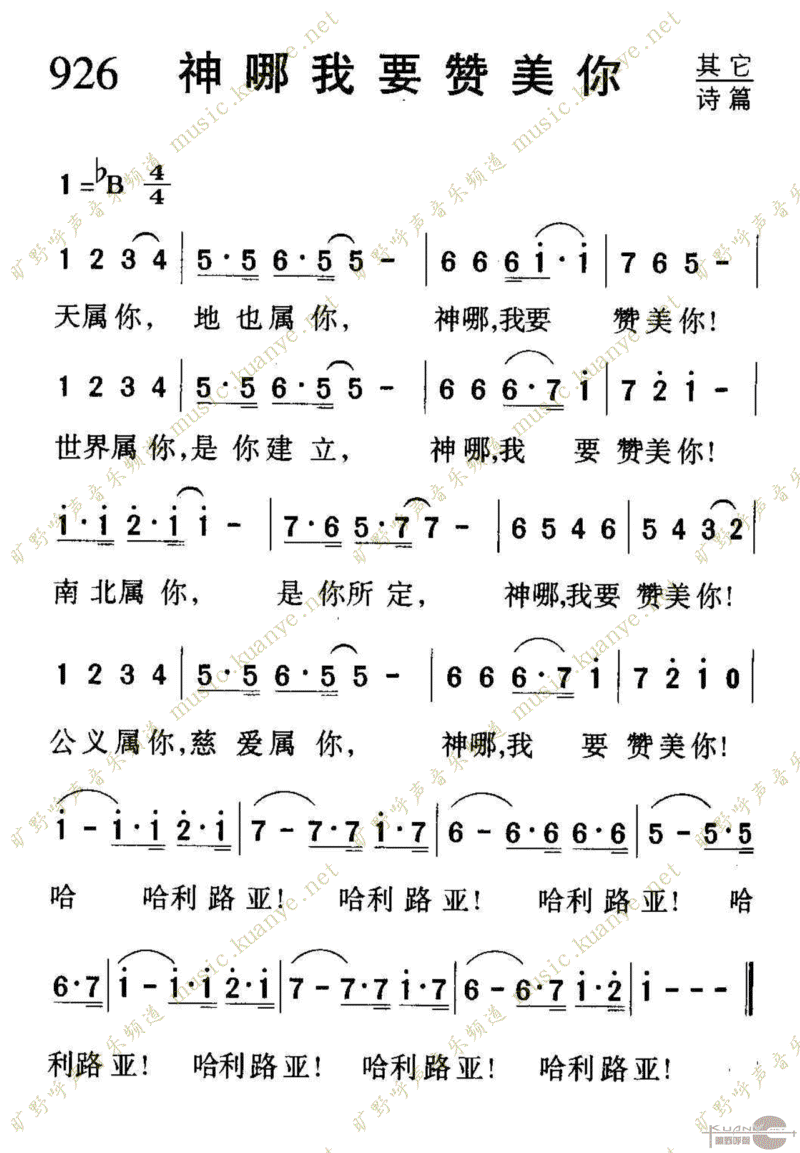 926 神哪我要赞美你 其它
诗篇
1=♭B 4/4
1 2 3 4 | 5·5 6·5 5 - | 6 6 6 i·i | 7 6 5 - |
天属你，地也属你，神哪,我要 赞美你!
1 2 3 4 | 5·5 6·5 5 - | 6 6 6·7 i | 7 2̇ i - |
世界属你,是你建立，神哪,我 要赞美你!
i·i 2̇·i i - | 7·6 5·7 7 - | 6 5 4 6 | 5 4 3 2 |
南北属你，是你所定，神哪,我要赞美你!
1 2 3 4 | 5·5 6·5 5 - | 6 6 6·7 i | 7 2̇ i 0
公义属你,慈爱属你，神哪,我 要赞美你!
i - i·i 2̇·i | 7 - 7·7 i·7 | 6 - 6·6 6·6 | 5 - 5·5
哈 哈利路亚! 哈利路亚! 哈利路亚! 哈
6·7 | i - i·i 2̇·i | 7 - 7·7 i·7 | 6 - 6·7 i·2̇ | i - - - ‖
利路亚! 哈利路亚! 哈利路亚! 哈利路亚!
旷野呼声音乐频道 music.kuanye.net